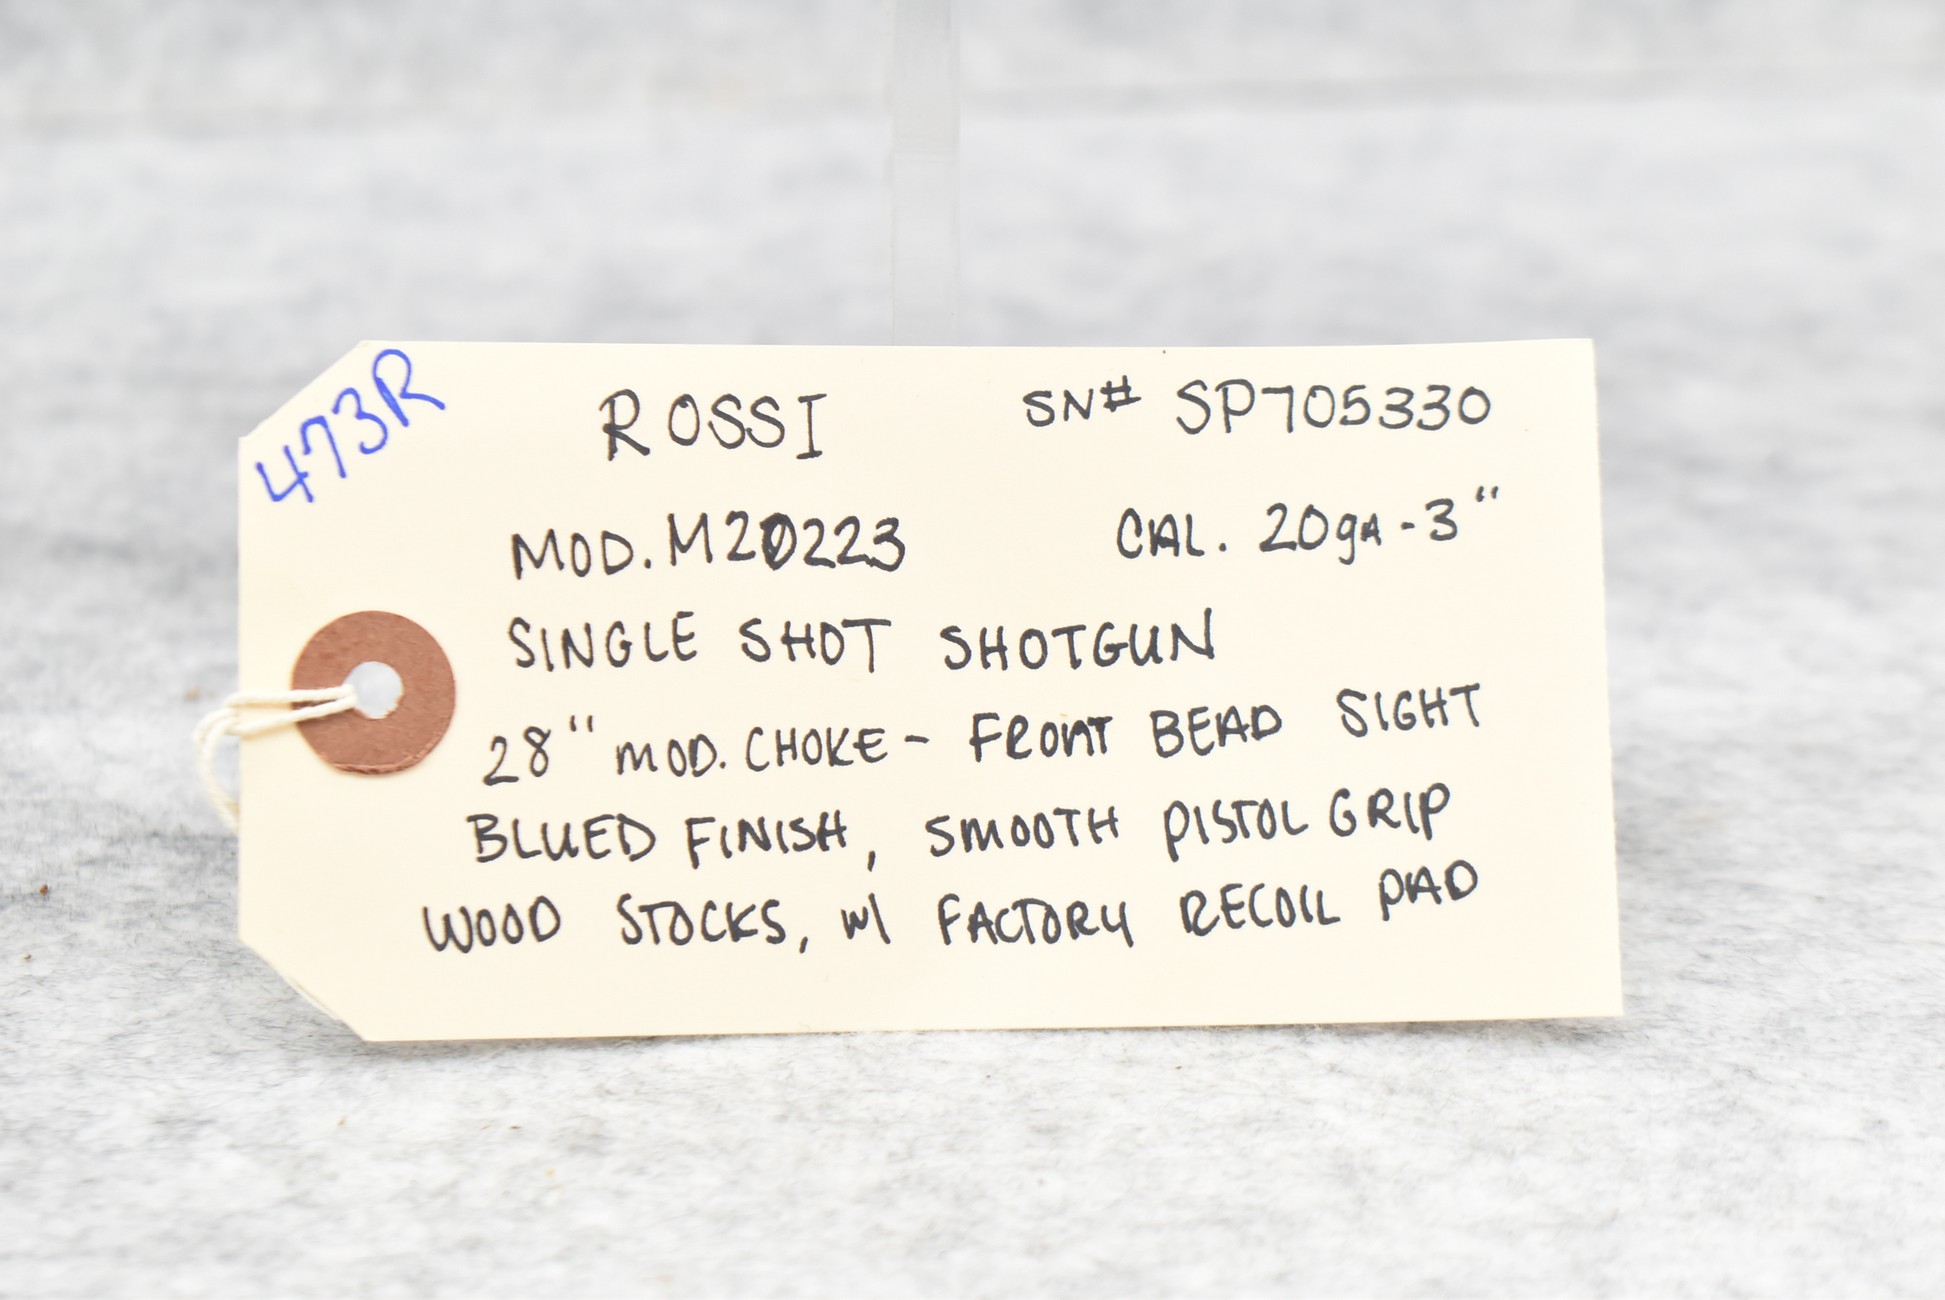 473R
ROSSI SN# SP705330
MOD. M20223 CAL. 20ga-3"
SINGLE SHOT SHOTGUN
28" MOD. CHOKE - FRONT BEAD SIGHT
BLUED FINISH, SMOOTH PISTOL GRIP
WOOD STOCKS, w/ FACTORY RECOIL PAD